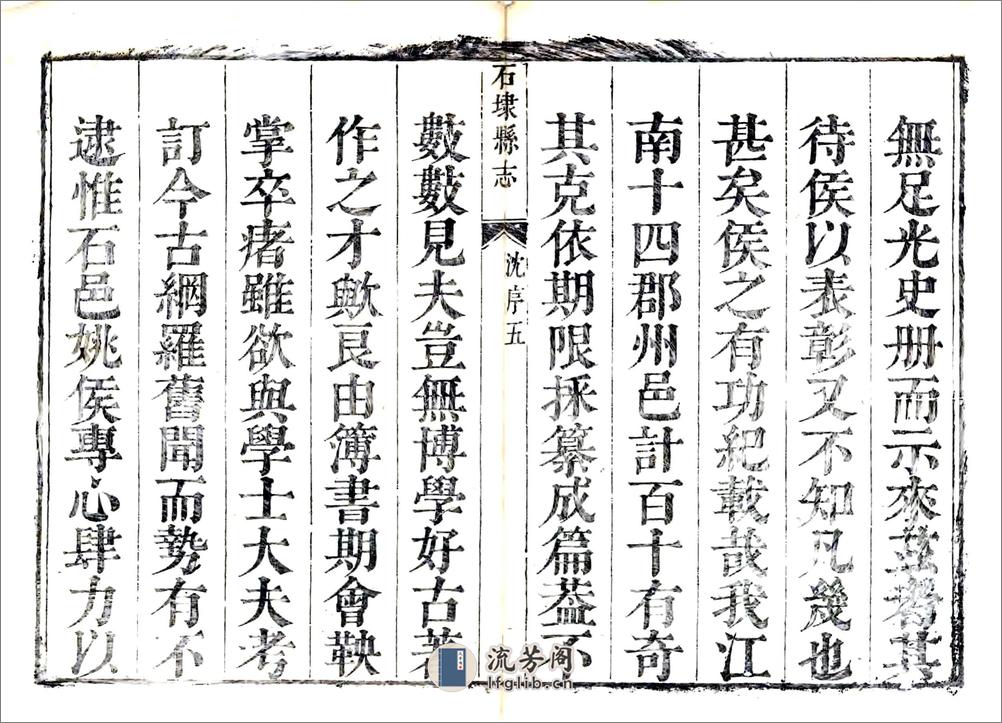 無足光史册而示來茲者其
待侯以表彰又不知凡幾也
甚矣侯之有功紀載哉我江
南十四郡州邑計百十有奇
其克依期限採纂成篇葢不
石埭縣志
沈序
五
數數見夫豈無博學好古著
作之才歟艮由簿書期會鞅
掌卒瘏雖欲與學士大夫考
訂今古網羅舊聞而勢有不
逮惟石邑姚侯專心肆力以
流芳阁
lfglib.cn